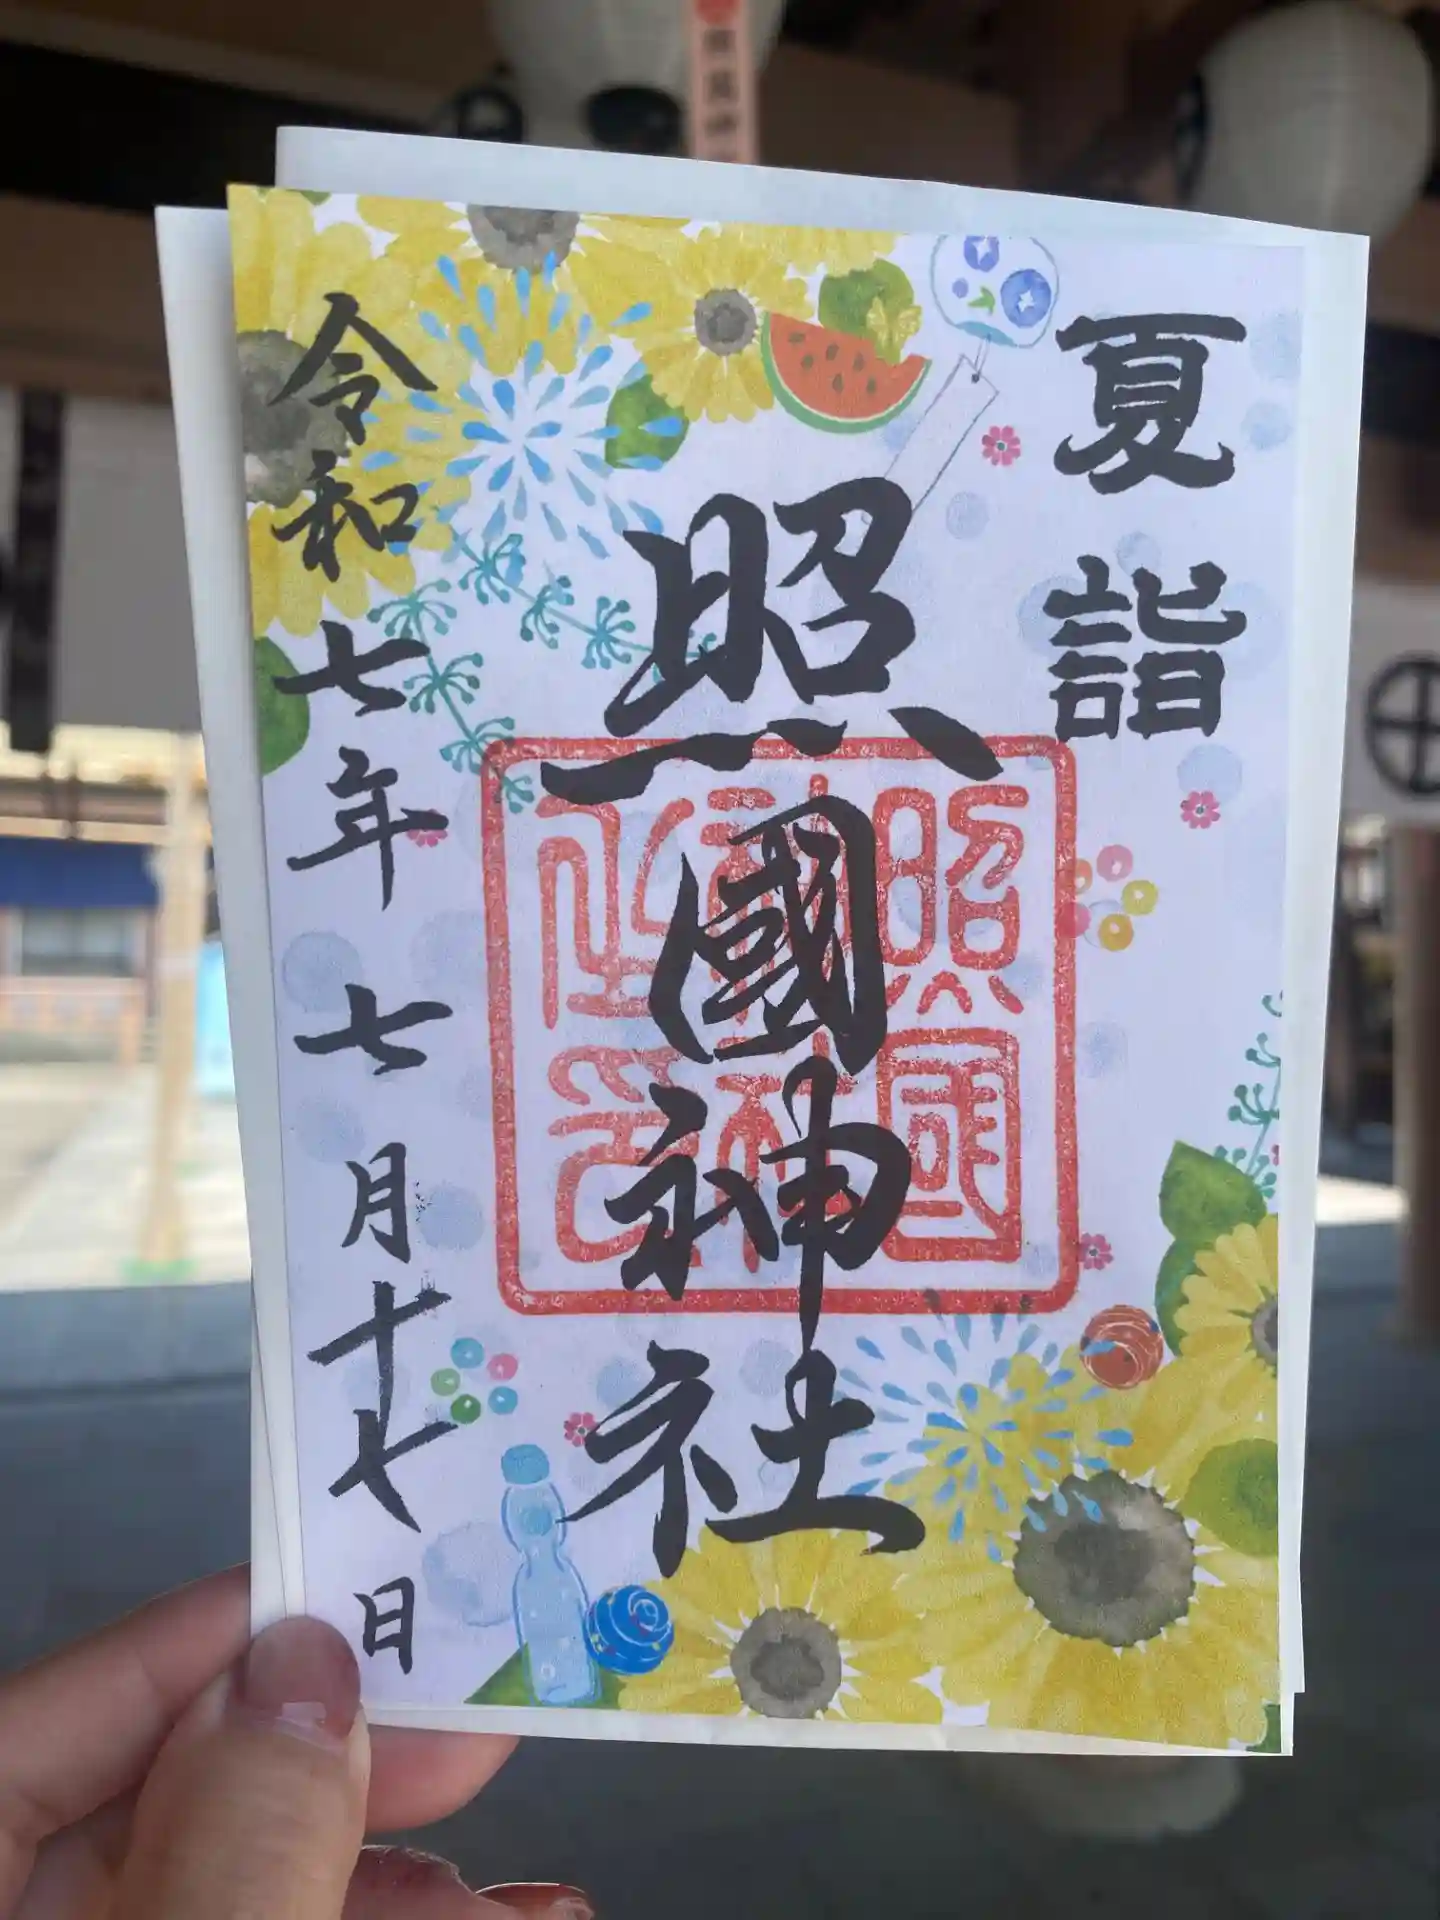 夏詣
照國神社
照国神社之印
令和七年七月十七日